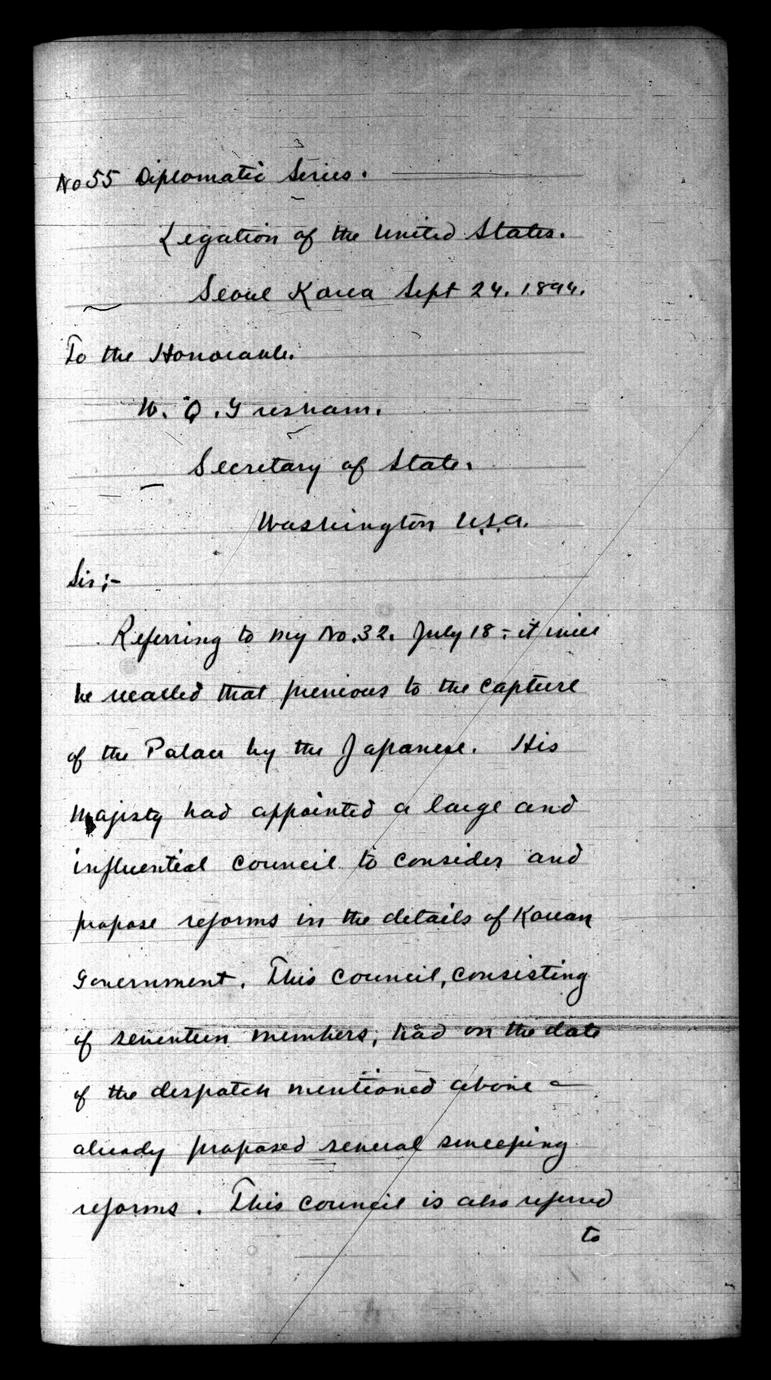 No 55 Diplomatic Series.
Legation of the United States.
Seoul Korea Sept 24. 1894.
To the Honorable.
W. Q. Gresham.
Secretary of State.
Washington U.S.A.
Sir;-
Referring to my No. 32. July 18 - it will
be recalled that previous to the capture
of the Palace by the Japanese. His
Majesty had appointed a large and
influential council to consider and
propose reforms in the details of Korean
Government. This council, consisting
of seventeen members, had on the date
of the despatch mentioned above -
already proposed several sweeping
reforms. This council is also referred
to